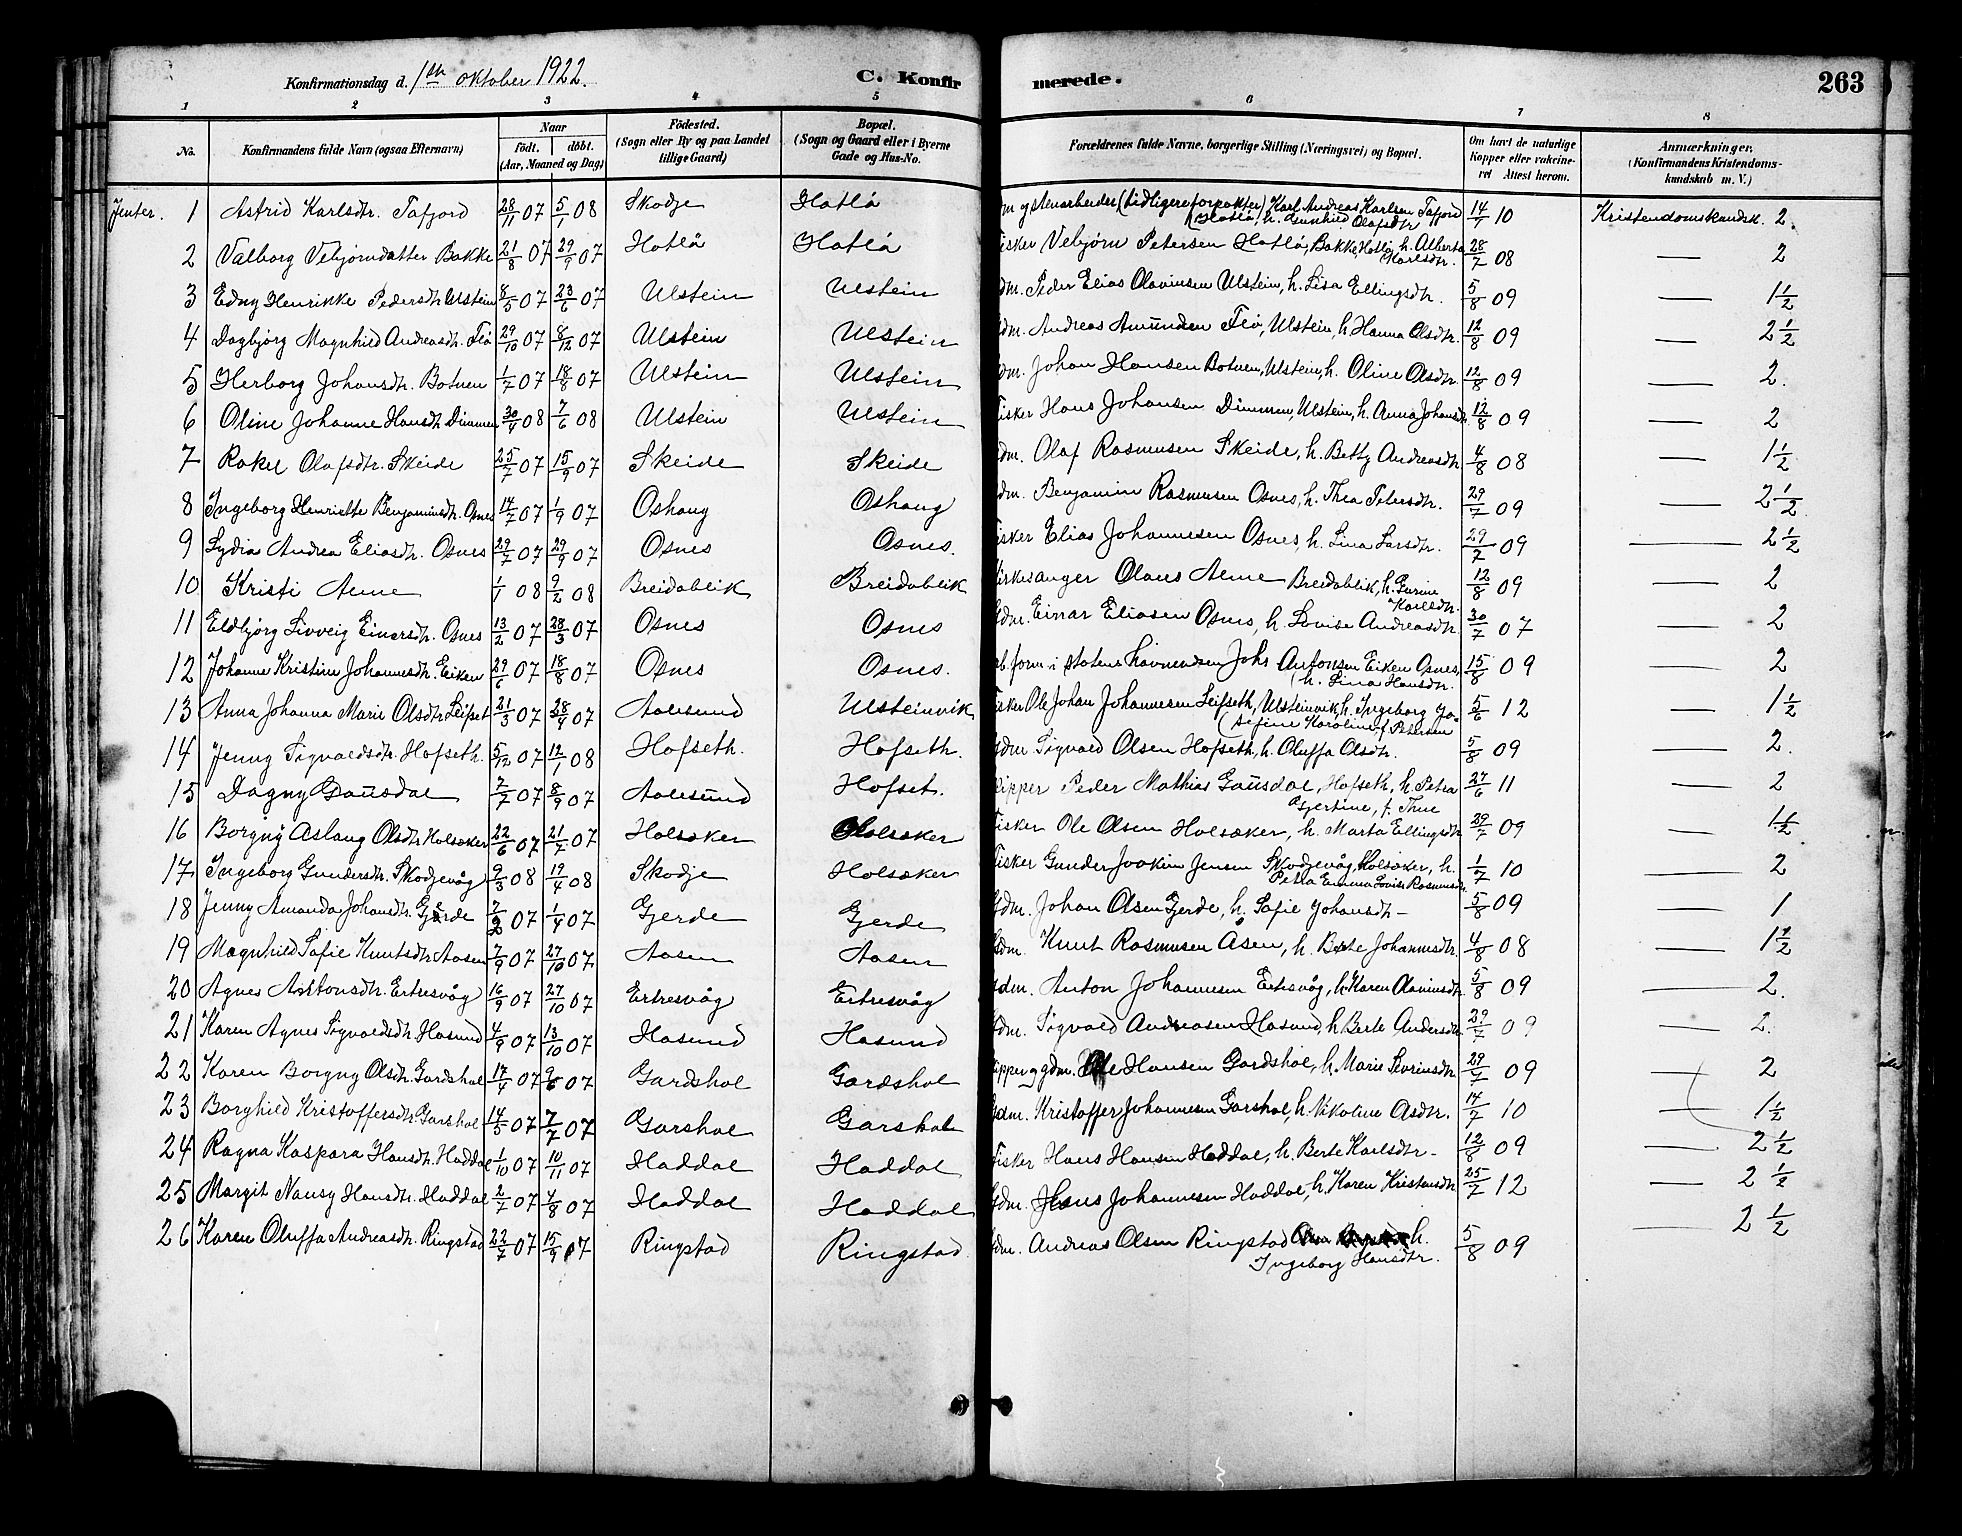 Konfirmationsdag d. 1ste oktober 1922. C. Konfirmerede. 263
1 2 3 4 5 6 7 8
No. Konfirmandens fulde Navn (ogsaa Efternavn) Naar födt. döbt. (Aar, Maaned og Dag) Födested. (Sogn eller By og paa Landet tillige Gaard) Bopæl. (Sogn og Gaard eller i Byerne Gade og Hus-No. Forældrenes fulde Navne, borgerlige Stilling (Næringsvei) og Bopæl. Om havt de naturlige Kopper eller vakcineret Attest herom. Anmærkninger. (Konfirmandens Kristendomskundskab m. V.)
Jenter. 1 Astrid Karlsdtr. Tafjord 28/11 07 5/1 08 Skodje Hatlö m ystenarbeider (tidligere forpakter) Karl Andreas Karlsen Tafjord 14/7 10 Kristendomskundsk. 2.
(Hatlö, h. Gunhild Olafsdtr
2 Valborg Vebjörnsdatter Bakke 21/8 07 29/9 07 Hatlå Hatlö isker Vebjörn Petersen Hatlö, Bakke, Hatlö, h. Alberta Karlsdtr. 28/7 08 — 2
3 Edny Henrikke Pedersdtr Ulstein 8/5 07 23/6 07 Ulstein Ulstein dm. Peder Elias Olavinsen Ulstein, h. Lisa Ellingsdtr. 5/8 09 — 1 1/2
4 Dagbjörg Magnhild Andreasdtr. Flö 29/10 07 8/12 07 Ulstein Ulstein dm. Andreas Amundsen Flö, Ulstein, h Hanna Olsdtr. 12/8 09 — 2 1/2
5 Herborg Johansdtr. Botnen 1/7 07 18/8 07 Ulstein Ulstein dm. Johan Hansen Botnen, Ulstein, h. Oline Olsdtr. 12/8 09 — 2.
6 Oline Johanne Hansdtr Dimmen 30/4 08 7/6 08 Ulstein Ulstein isker Hans Johansen Dimmen, Ulstein, h. Anna Johansdtr. 12/8 09 — 2
7 Rakel Olafsdtr. Skeide 25/7 07 15/9 07 Skeide Skeide dm. Olaf Rasmusen Skeide, h. Betty Andreasdtr 4/8 08 — 1 1/2
8 Ingeborg Henriette Benjaminsdtr. Osnes 17/7 07 1/9 07 Oshaug Oshaug dm. Benjamin Rasmusen Osnes, h. Thea Petersdtr. 29/7 09 — 2 1/2
9 Lydia Andrea Eliasdtr. Osnes 29/7 07 29/9 07 Osnes Osnes. isker Elias Johannesen Osnes, h. Lina Larsdtr. 29/7 09 — 2 1/2
10 Kristi Aeme 1/1 08 9/2 08 Breidablik Breidablik irkesanger Olaus Aeme Breidablik, h. Gurine Karlsdtr. 12/8 09 — 2
11 Eldbjörg Sivveig Einarsdtr. Osnes 13/2 07 28/3 07 Osnes Osnes dm. Einar Eliasen Osnes, h. Lovise Andreasdtr. 30/7 07 — 2
12 Johanne Kristine Johannesdtr. Eiken 29/6 07 18/8 07 Osnes Osnes. b. form i statens havnevesen Johs Antonsen Eiken Osnes, 15/8 09 — 2
(h. Lina Hansdtr.
13 Anna Johanna Marie Olsdtr Leifset 21/3 07 28/4 07 Aalesund Ulsteinvik isker Ole Johan Johannesen Leifseth, Ulsteinvik, h. Ingeborg Jo- 5/6 12 — 1 1/2
(sefine Karoline f. Petersen
14 Jenny Sigvaldsdtr. Hofseth. 5/12 07 12/1 08 Hofseth. Hofseth. dm. Sigvald Olsen Hofseth, h. Oluffa Olsdtr. 5/8 09 — 2.
15 Dagny Gausdal 7/7 07 8/9 07 Aalesund Hofset. ipper Peder Mathias Gausdal, Hofseth, h. Petra Gjertine, f. Thue 27/6 11 — 2
16 Borgny Aslaug Olsdtr Holsæker 22/6 07 21/7 07 Holsæker Holsæker isker Ole Olsen Holsæker, h. Marta Ellingsdtr. 29/7 09 — 1 1/2
17 Ingeborg Gundersdtr. Skodjevåg 9/3 08 19/4 08 Skodje Holsæker isker Gunder Joakim Jensen Skodjevåg, Holsæker, h. 1/7 10 — 2
Petra Emma Lovise Rasmusdtr.
18 Jenny Amanda Johansdtr. Gjerde 7/2 07 1/4 07 Gjerde Gjerde dm. Johan Olsen Gjerde, h. Sofie Johansdtr – 5/8 09 — 1
19 Magnhild Sofie Knutsdtr Aasen 7/9 07 27/10 07 Aasen Aasen dm. Knut Rasmusen Åsen, h. Berte Johannesdtr. 4/8 08 — 1 1/2
20 Agnes Antonsdtr. Ertresvåg 16/9 07 27/10 07 Ertresvåg Ertresvåg dm. Anton Johannesen Ertresvåg, h. Karen Olavinsdtr. 5/8 09 — 2.
21 Karen Agnes Sigvaldsdtr. Hasund 4/9 07 13/10 07 Hasund Hasund dm. Sigvald Andreasen Hasund, h. Berte Andersdtr. 29/7 09 — 2.
22 Karen Borgny Olsdtr. Gardshol 17/4 07 9/6 07 Gardshol Gardshol ipper og gdm. Ole Hansen Gardshol, h. Marie Sevrinsdtr 29/7 09 — 2
23 Borghild Kristoffersdtr. Garshol 14/5 07 7/7 07 Garshol Garshol dm. Kristoffer Johannesen Garshol, h. Nikoline Asdtr. 14/7 10 — 1 1/2
24 Ragna Kaspara Hansdtr. Haddal 1/10 07 10/11 07 Haddal Haddal isker Hans Hansen Haddal, h. Berte Karlsdtr – 12/8 09 — 2 1/2
25 Margit Nansy Hansdtr. Haddal 2/7 07 4/8 07 Haddal Haddal dm. Hans Johannesen Haddal, h. Karen Kristensdtr 25/7 12 — 2 1/2
26 Karen Oluffa Andreasdtr. Ringstad 22/7 07 15/9 07 Ringstad Ringstad dm. Andreas Olsen Ringstad h. 5/8 09 — 2 1/2
Ingeborg Hansdtr.